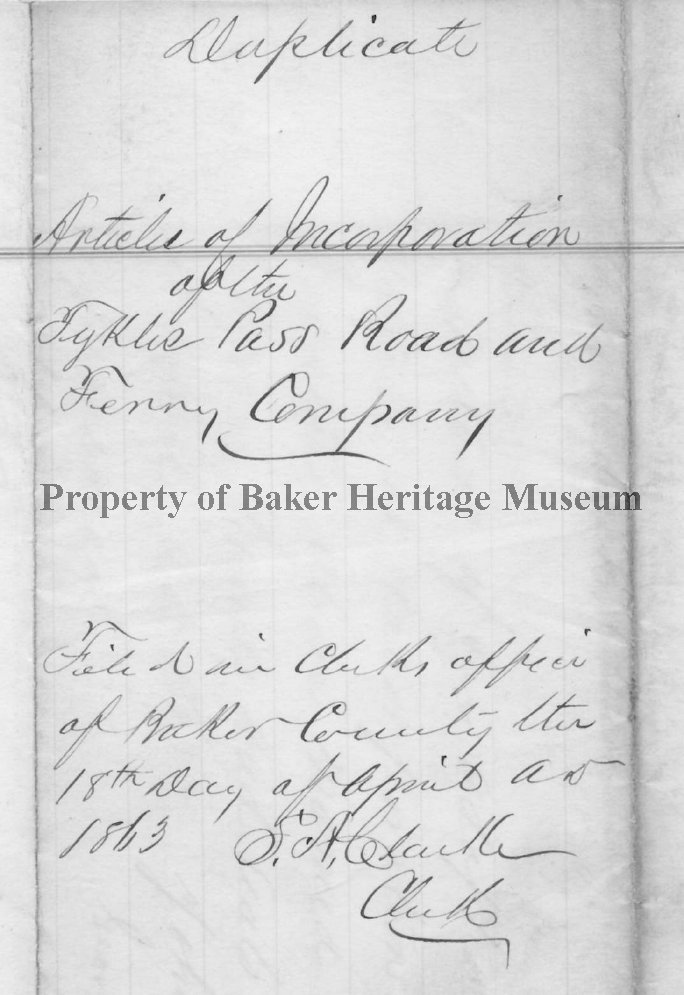 Duplicate
Articles of Incorporation
of the
Tykhe Pass Road and
Ferry Company
Property of Baker Heritage Museum
Filed in Clerks office
of Baker County the
18th Day of April AD
1863 S. A. Clarke
Clerk